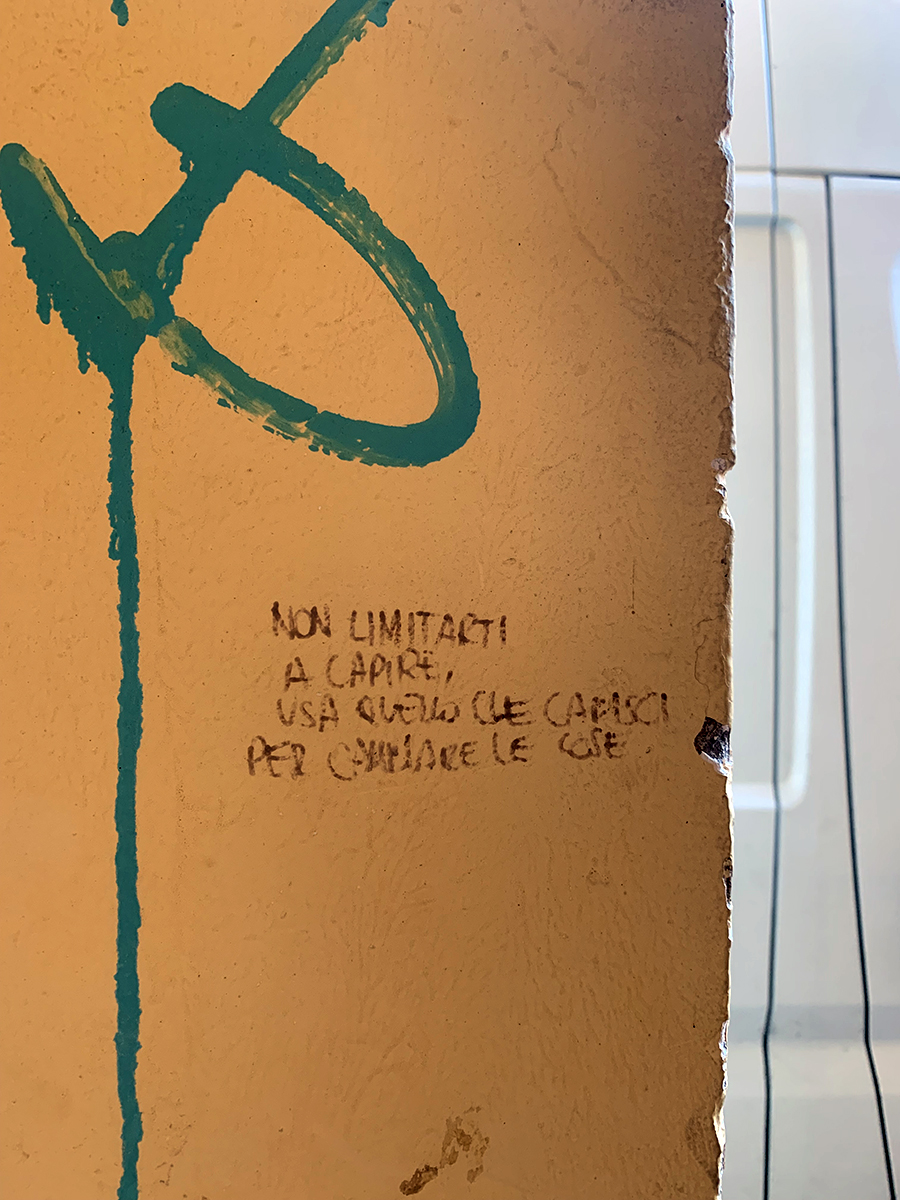 NON LIMITARTI
A CAPIRE,
USA QUELLO CHE CAPISCI
PER CAMBIARE LE COSE.